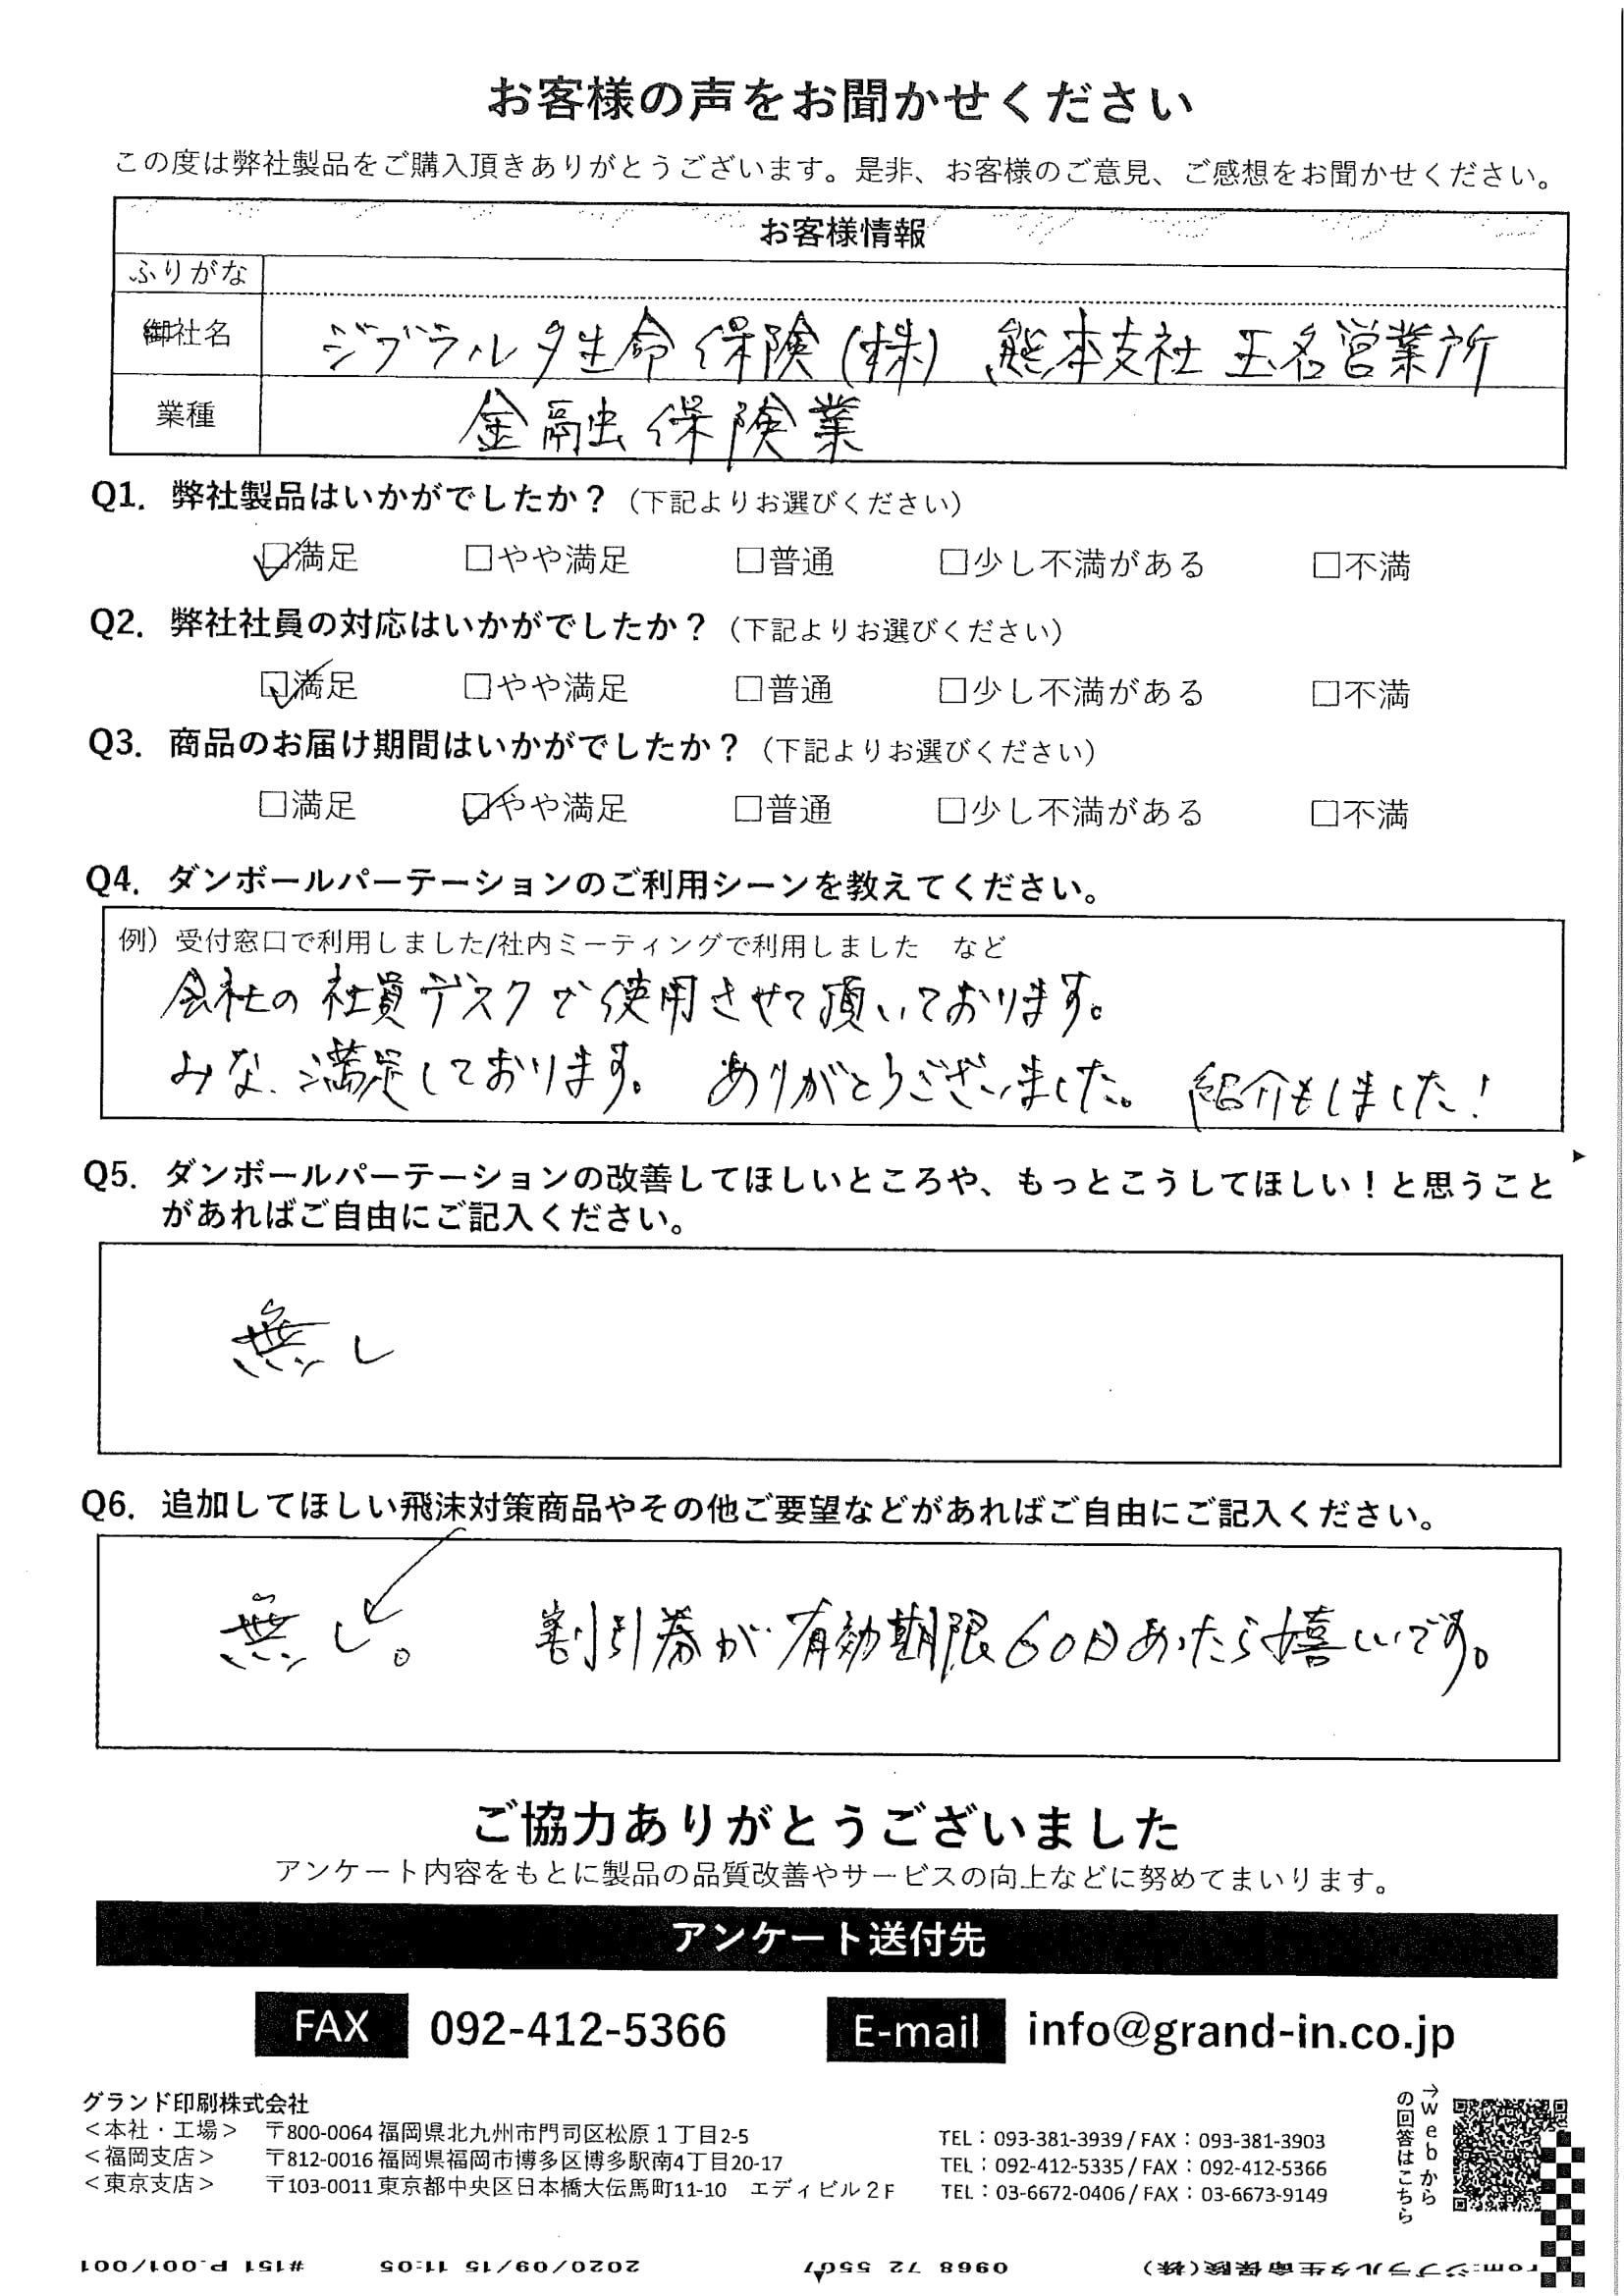 お客様の声をお聞かせください
この度は弊社製品をご購入頂きありがとうございます。是非、お客様のご意見、ご感想をお聞かせください。
お客様情報
ふりがな
御社名 ジブラルタ生命保険(株) 熊本支社 玉名営業所
業種 金融保険業
Q1. 弊社製品はいかがでしたか？（下記よりお選びください）
☑満足 □やや満足 □普通 □少し不満がある □不満
Q2. 弊社社員の対応はいかがでしたか？（下記よりお選びください）
☑満足 □やや満足 □普通 □少し不満がある □不満
Q3. 商品のお届け期間はいかがでしたか？（下記よりお選びください）
□満足 ☑やや満足 □普通 □少し不満がある □不満
Q4. ダンボールパーテーションのご利用シーンを教えてください。
例）受付窓口で利用しました/社内ミーティングで利用しました　など
会社の社員デスクで使用させて頂いております。
みな、満足しております。 ありがとうございました。 紹介もしました！
Q5. ダンボールパーテーションの改善してほしいところや、もっとこうしてほしい！と思うこと
があればご自由にご記入ください。
無し
Q6. 追加してほしい飛沫対策商品やその他ご要望などがあればご自由にご記入ください。
無し。 割引券が有効期限60日あったら嬉しいです。
ご協力ありがとうございました
アンケート内容をもとに製品の品質改善やサービスの向上などに努めてまいります。
アンケート送付先
FAX 092-412-5366 E-mail info@grand-in.co.jp
グランド印刷株式会社
＜本社・工場＞ 〒800-0064 福岡県北九州市門司区松原１丁目2-5 TEL：093-381-3939 / FAX：093-381-3903
＜福岡支店＞ 〒812-0016 福岡県福岡市博多区博多駅南4丁目20-17 TEL：092-412-5335 / FAX：092-412-5366
＜東京支店＞ 〒103-0011 東京都中央区日本橋大伝馬町11-10　エディビル２F TEL：03-6672-0406 / FAX：03-6673-9149
→webから
の回答はこちら
rom:ジブラルタ生命保険(株) 0968 72 5507 2020/09/15 11:05 #151 P.001/001